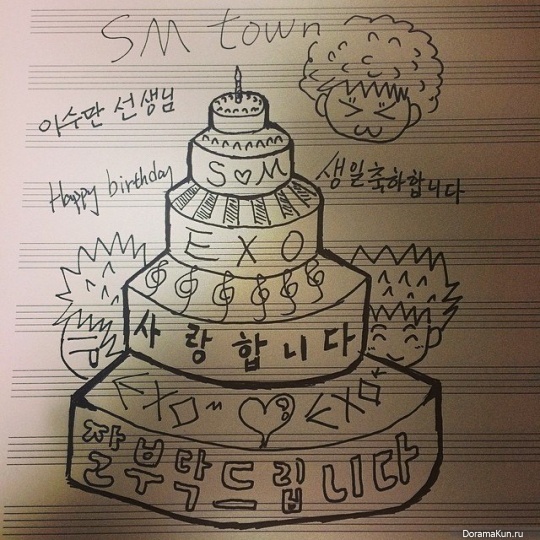 SM town
이수만 선생님
Happy birthday
생일축하합니다
S♡M
EXO
사랑합니다
EXO ~ ♡ EXO
잘부탁드립니다
DoramaKun.ru